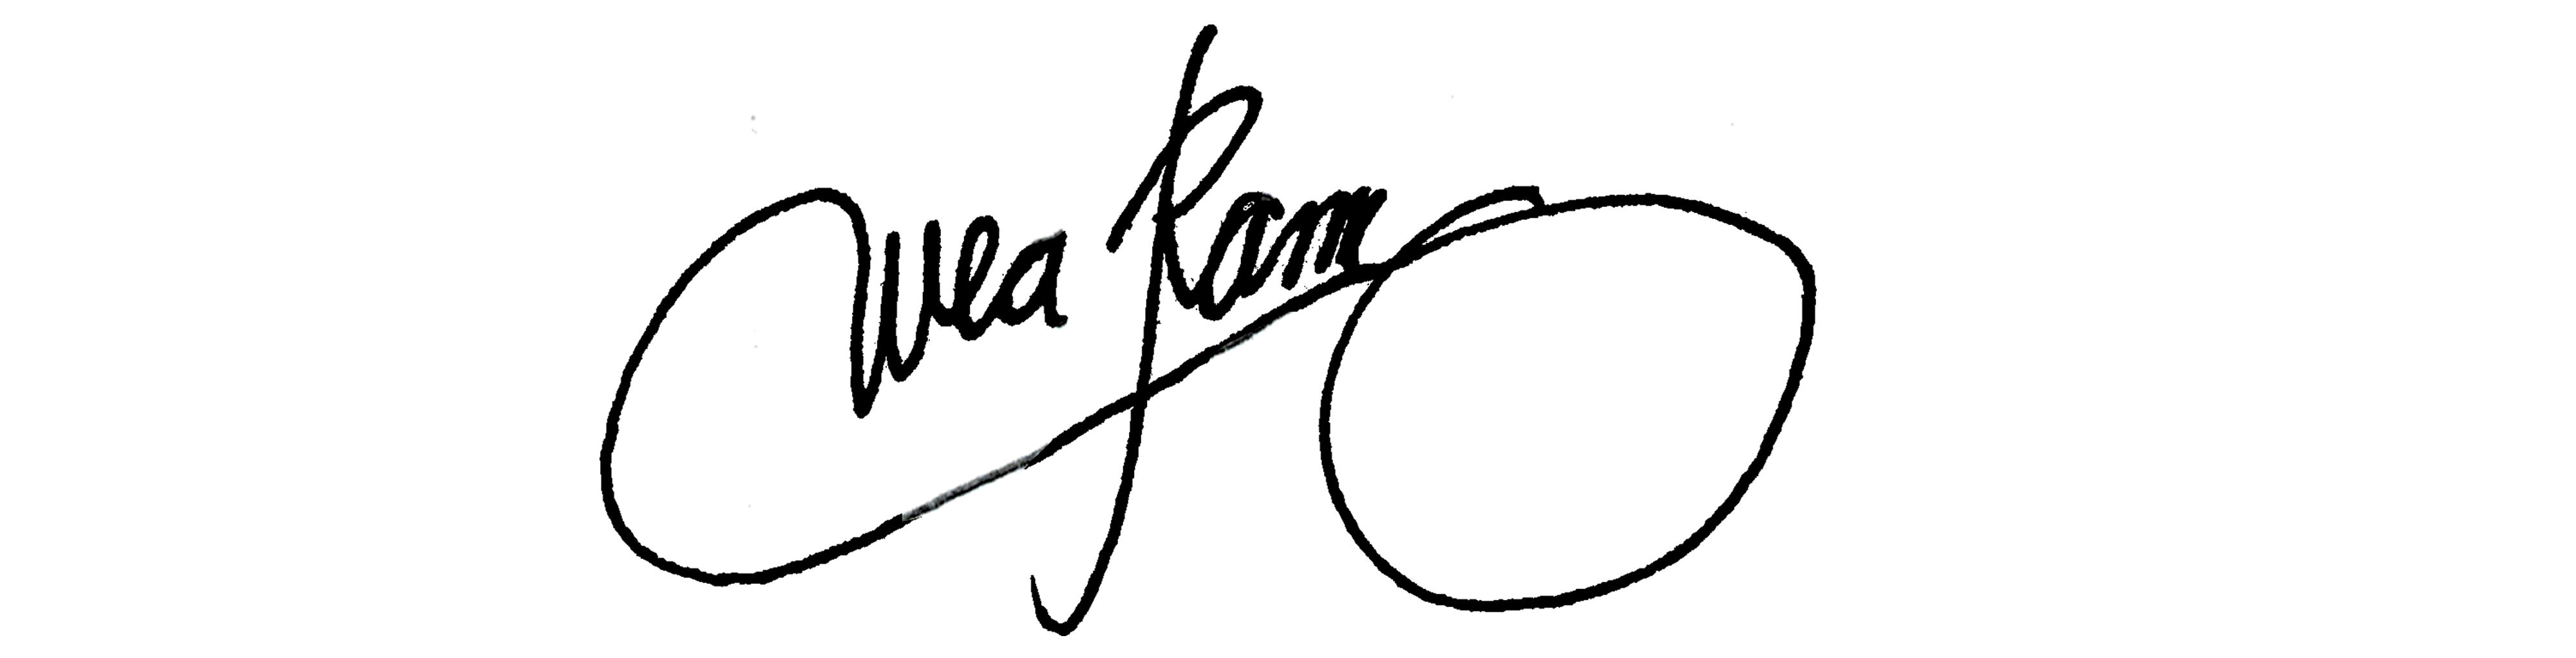 Wea Ram